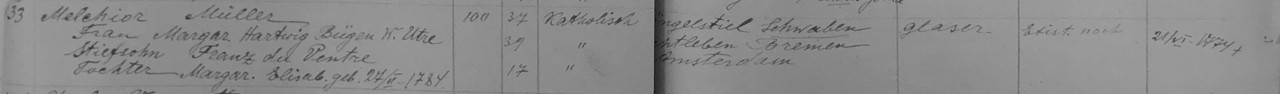 33 Melchior Müller 100 37 Katholisch Ingelstiel Schwaben glaser Exist. noch 21/VI 1774 +
Frau Margar Hartwig Bügen W. Utre 39 " htleben Bremen
Stiefsohn Franz du Pentre Amsterdam
Tochter Margar. Elisab. geb. 27/II 1784 17 "